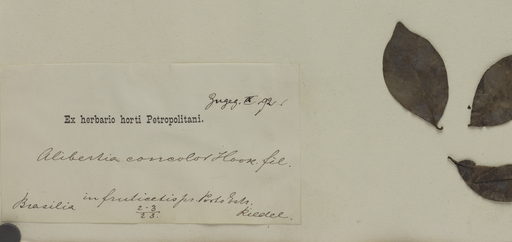 Zugeg. IX. 92.
Ex herbario horti Petropolitani.
Alibertia concolor Hook. fil.
Brasilia in fruticetis pr. Porto Estr.
2-3
23.
Riedel.